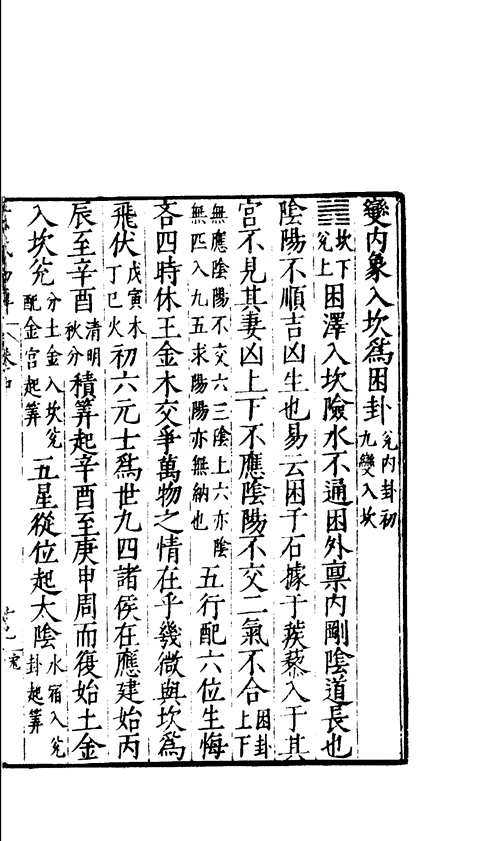 變內象入坎爲困卦兊內卦初九變入坎
䷮坎下兊上困澤入坎險水不通困外稟內剛陰道長也
陰陽不順吉凶生也易云困于石據于蒺藜入于其
宮不見其妻凶上下不應陰陽不交二氣不合困卦上下
無應陰陽不交六三陰上六亦陰無匹入九五求陽陽亦無納也五行配六位生悔
吝四時休王金木交爭萬物之情在乎幾微與坎爲
飛伏戊寅木丁巳火初六元士爲世九四諸侯在應建始丙
辰至辛酉清明秋分積筭起辛酉至庚申周而復始土金
入坎兊分土金入坎兊配金宫起筭五星從位起太陰水宿入兊卦起筭